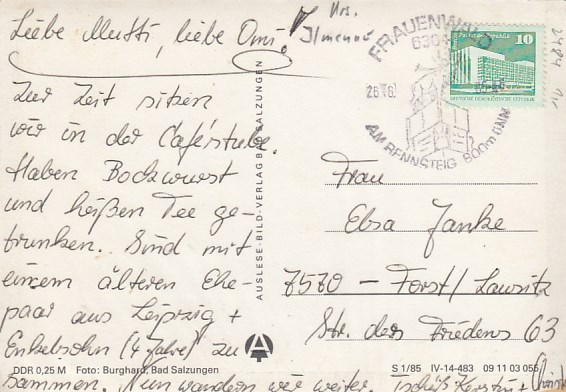 Liebe Mutti, liebe Omi.
Krs.
Ilmenau
Zur Zeit sitzen
wir in der Caféstube.
Haben Bockwurst
und heißen Tee ge-
trunken. Sind mit
einem älteren Ehe-
paar aus Leipzig +
Enkelsohn (4 Jahre) zu
sammen. Nun wandern wir weiter. Tschüß Kerstin +
FRAUENWALD
AM RENNSTEIG 800m ÜNN
10
DEUTSCHE DEMOKRATISCHE REPUBLIK
2484
AUSLESE-BILD-VERLAG BAD SALZUNGEN
Frau
Elsa Janke
7570 – Forst/Lausitz
Str. des Friedens 63
A
DDR 0,25 M Foto: Burghard, Bad Salzungen
S 1/85 IV-14-483 09 11 03 055